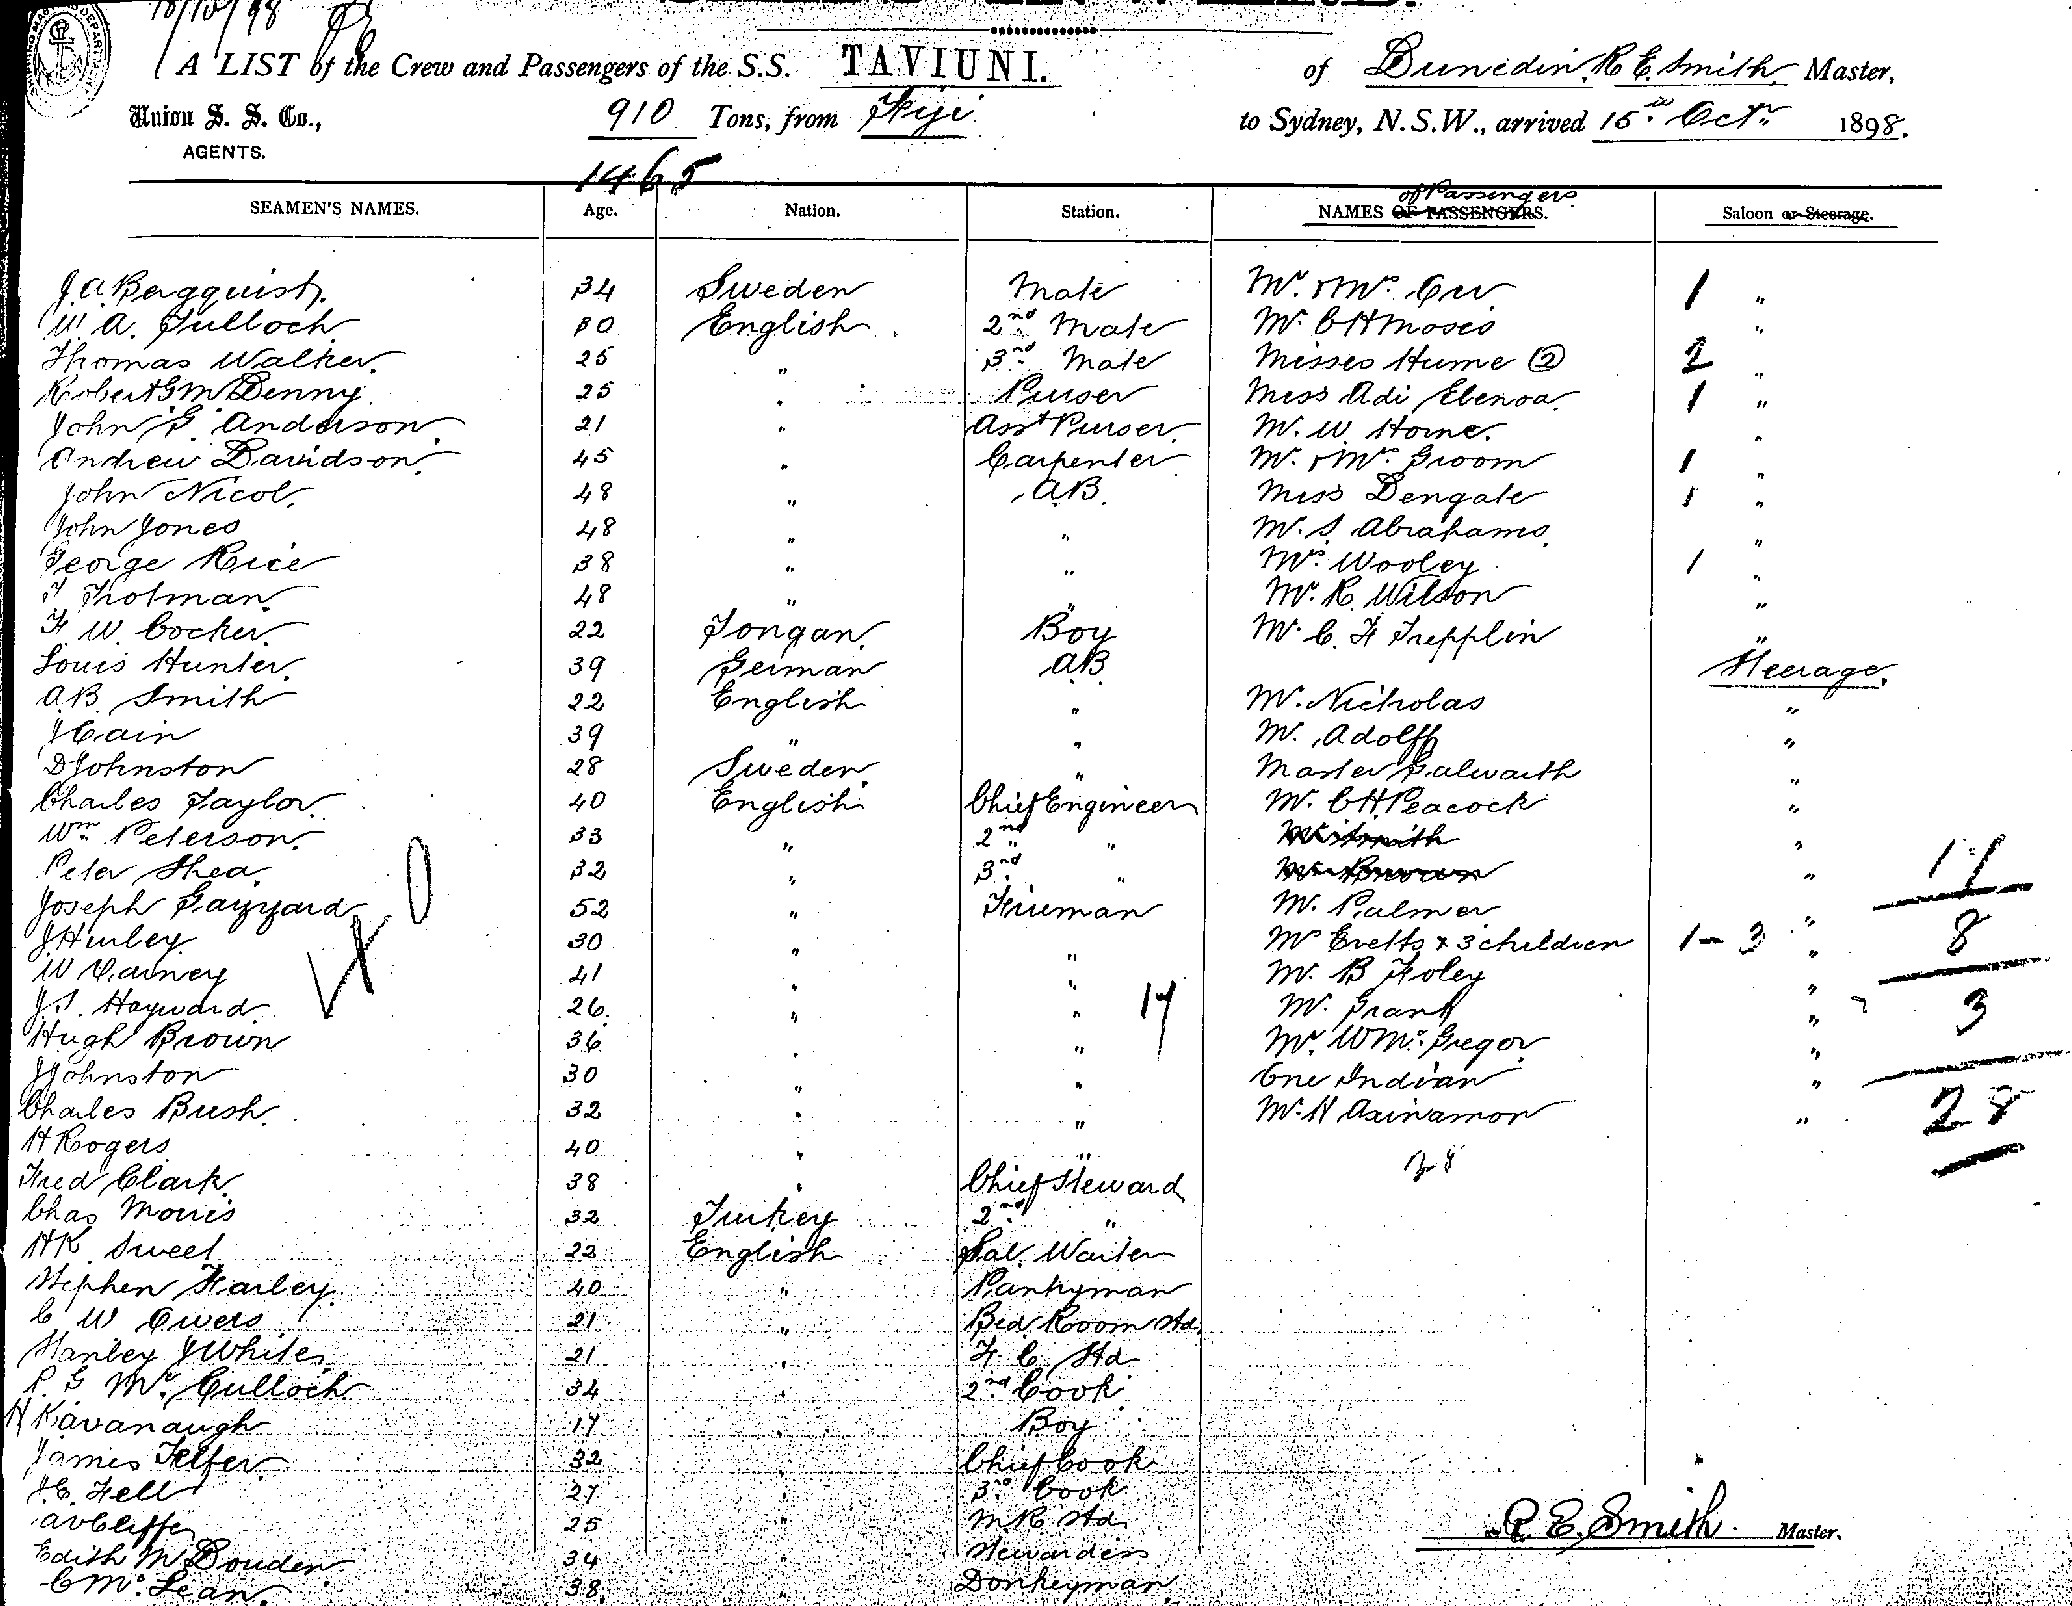 15/10/98
A LIST of the Crew and Passengers of the S.S. TAVIUNI. of Dunedin, R E Smith Master,
Union S. S. Co., AGENTS. 910 Tons, from Fiji to Sydney, N.S.W., arrived 15th Octr 1898.
1465
of Passengers
SEAMEN'S NAMES. Age. Nation. Station. NAMES OF PASSENGERS. Saloon or Steerage.
J. A. Bergquist. 34 Sweden Mate Mr. & Mrs. Orr 1 "
W. A. Tulloch 30 English 2nd Mate Mr. C H Moses "
Thomas Walker. 25 " 3rd Mate Misses Hume (2) 2 "
Robert G McDenny. 25 " Purser Miss Adi Elenoa. 1 "
John G. Anderson. 21 " Asst Purser. Mr. W Horne. "
Andrew Davidson. 45 " Carpenter Mr. & Mrs. Groom 1 "
John Nicol. 48 " A.B. Miss Dengate 1 "
John Jones 48 " " Mr. S. Abrahams. "
George Rice 38 " " Mrs. Wooley 1 "
T Tholman. 48 " " Mr. R. Wilson "
F W. Cocker. 22 Tongan. Boy Mr. C. F Trepplin "
Louis Hunter. 39 German A.B. Steerage.
A.B. Smith 22 English " Mr. Nicholas "
J Cain 39 " " Mr. Adolff "
D Johnston 28 Sweden. " Master Galwaith "
Charles Taylor. 40 English Chief Engineer Mr. C H. Peacock "
Wm. Peterson. 33 " 2nd " "
Peter Shea. 32 " 3rd " " 17
Joseph Gazzard 52 " Fireman Mr. Palmer "
J Hurley. 30 " " Mrs Evetts & 3 children 1 - 3 " 8
W Carney 41 " " Mr. B Foley "
J. S. Hayward. 26. " " 17 Mr. Grant " 3
Hugh Brown 36 " " Mr. W Mc. Gregor "
J Johnston 30 " " One Indian "
Charles Bush. 32 " " Mr. H Axinamon " 28
H Rogers 40 " " 28
Fred Clark. 38 " Chief Steward
Chas Morris 32 Turkey 2nd "
H R Sweet 22 English Sal. Waiter
Stephen Harley. 40 " Pantryman
C W Owers 21 " Bed Room Std.
Stanley J White. 21 " F. C. Std
P. G Mc. Culloch 34 " 2nd Cook
H Kavanaugh 17 " Boy
James Telfer. 32 " Chief Cook
J. E. Fell 27 " 3rd Cook
25 " M R Std. R. E. Smith. Master.
Edith M Bouden 34 " Stewardess
C Mc. Lean. 38. " Donkeyman.